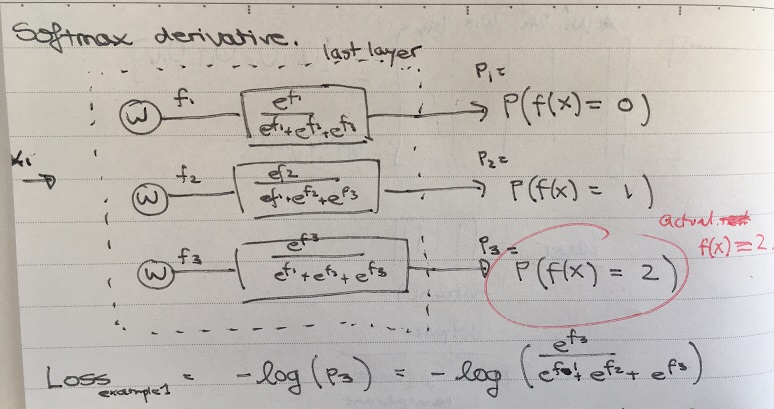 Softmax derivative.
last layer
P₁ =
W f₁ e^f₁ / (e^f₁ + e^f₂ + e^f₃) P(f(x) = 0)
xᵢ
P₂ =
W f₂ e^f2 / (e^f₁ + e^f₂ + e^f3) P(f(x) = 1)
actual
f(x) = 2.
P₃ =
W f₃ e^f3 / (e^f₁ + e^f₂ + e^f₃) P(f(x) = 2)
Loss example1 = -log(p₃) = -log (e^f₃ / (e^f1 + e^f₂ + e^f₃))